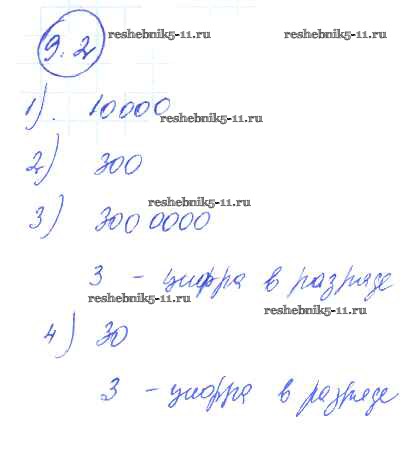 9.2
reshebnik5-11.ru
reshebnik5-11.ru
1). 10000
reshebnik5-11.ru
2) 300
reshebnik5-11.ru
3) 3000000
3 - цифра в разряде
reshebnik5-11.ru
reshebnik5-11.ru
4) 30
3 - цифра в разряде
reshebnik5-11.ru